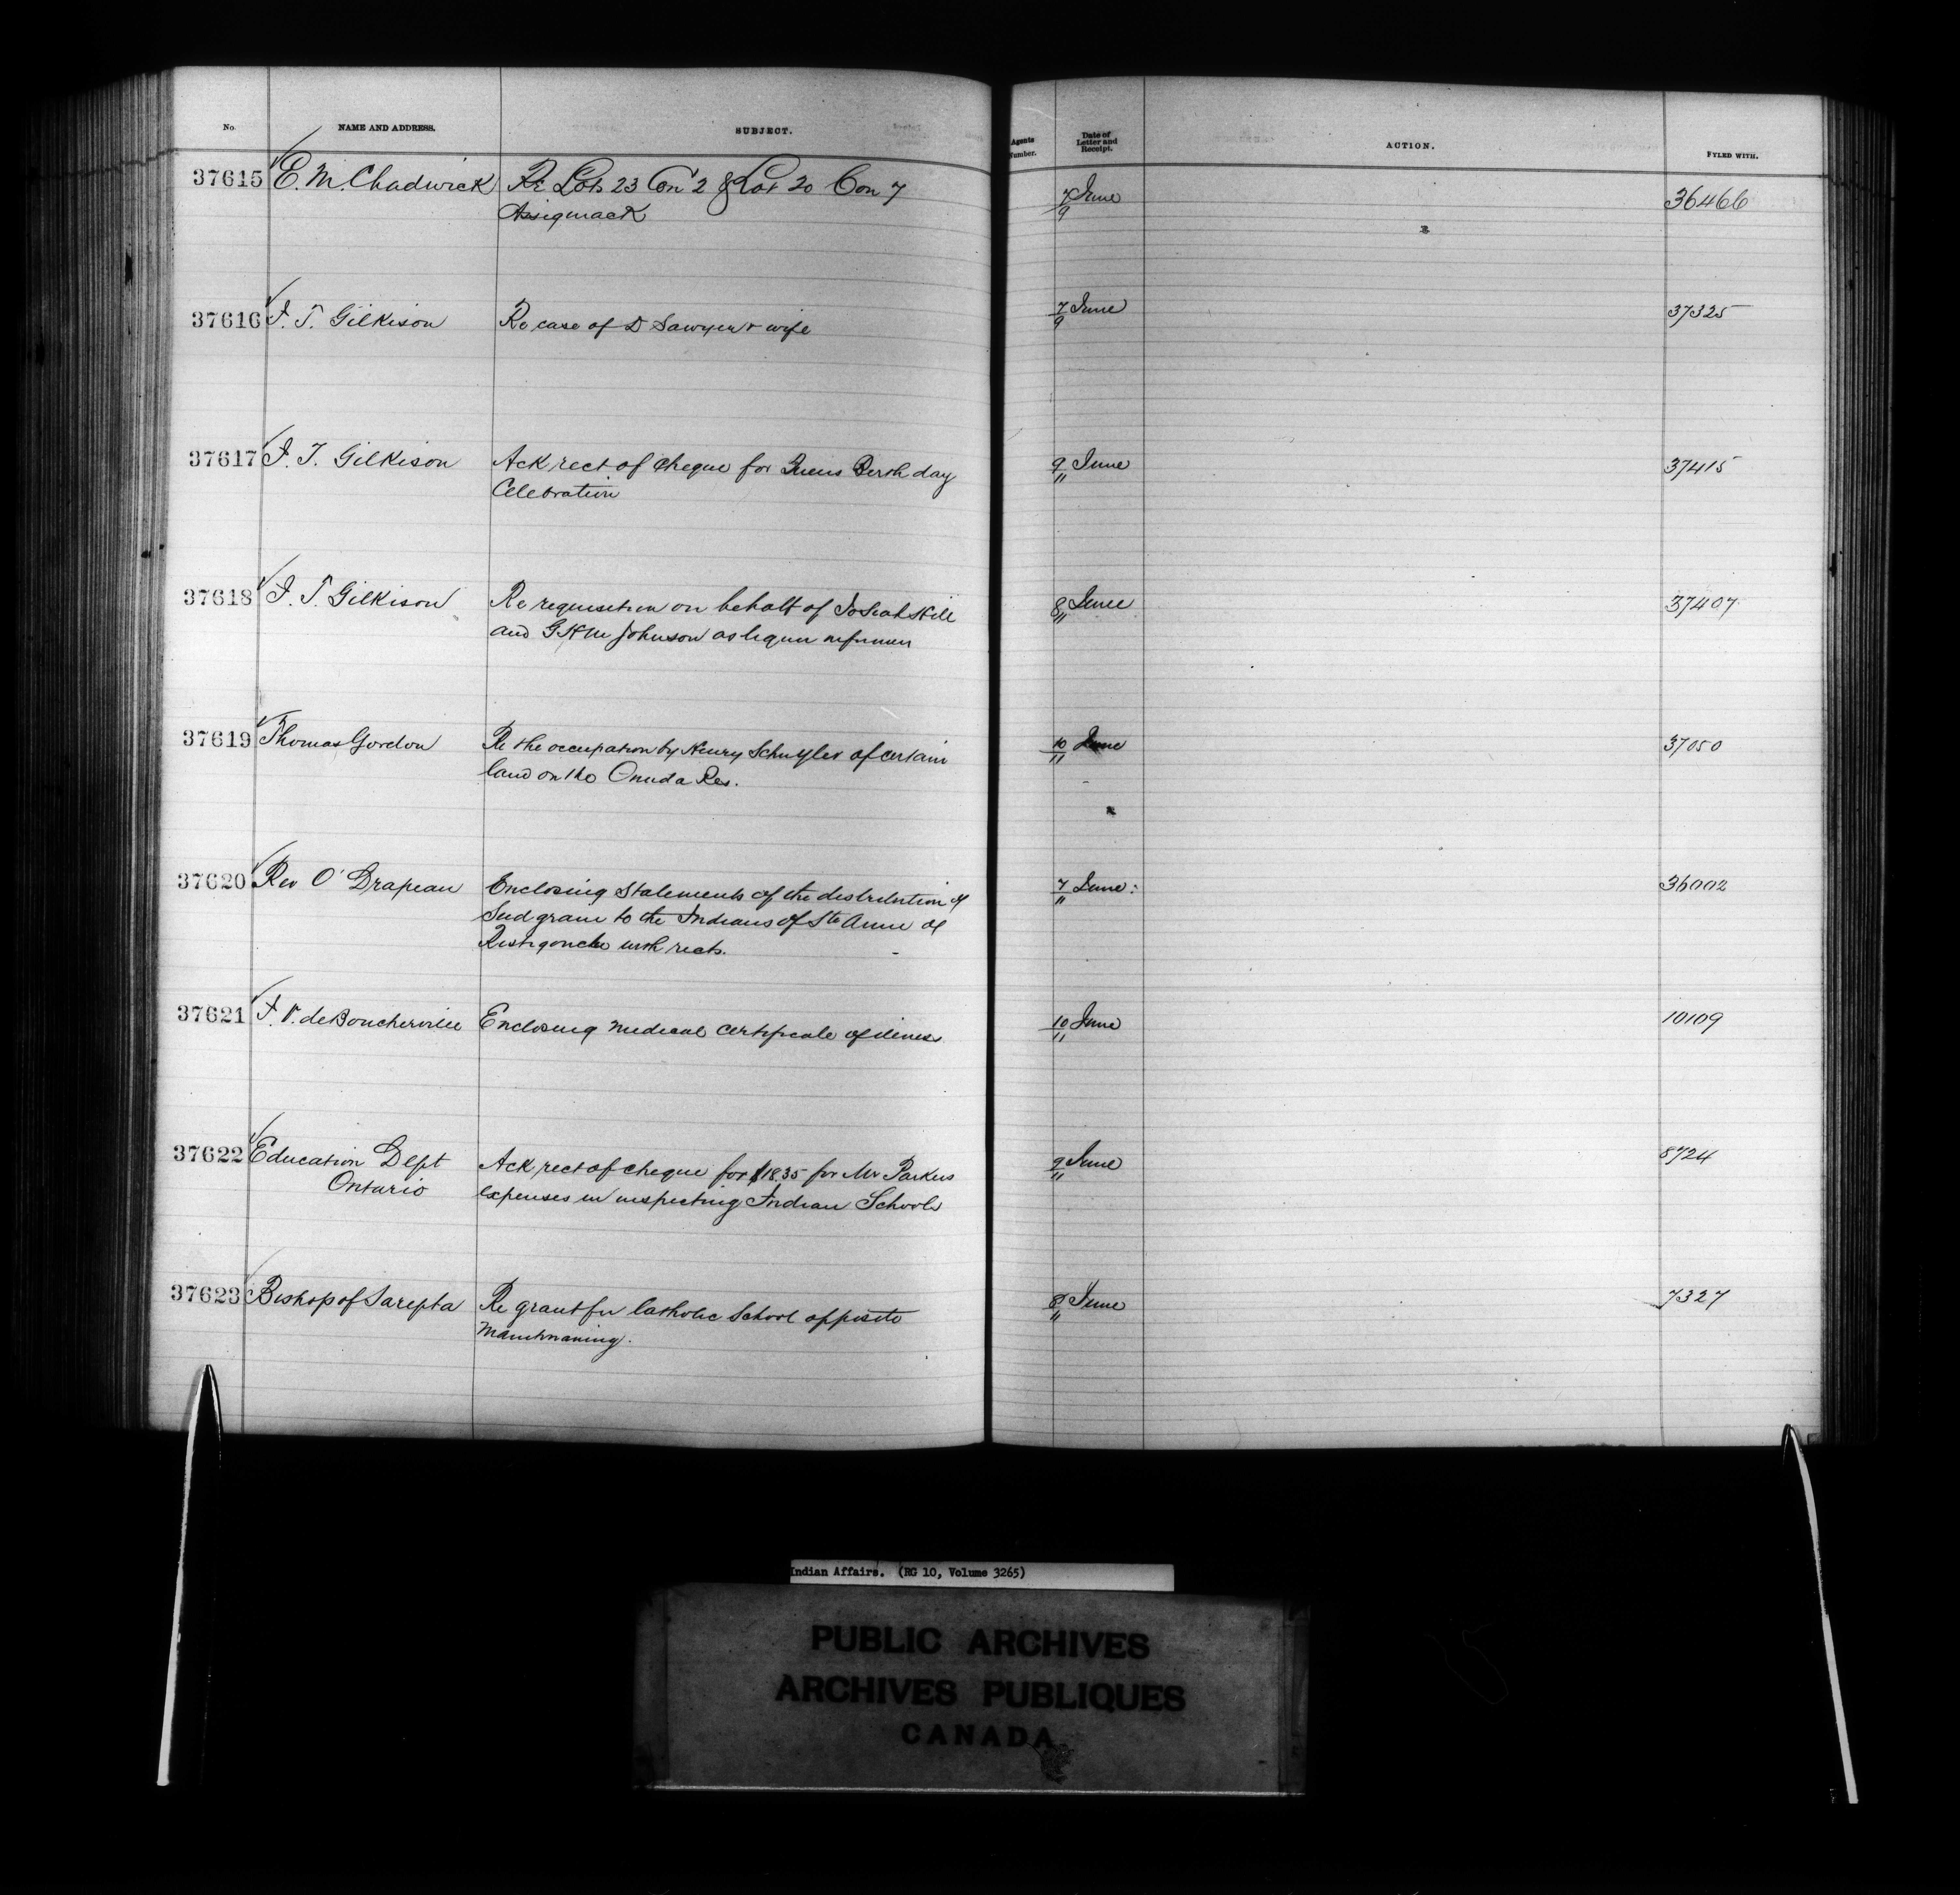 No. NAME AND ADDRESS. SUBJECT. Agents Number. Date of Letter and Receipt. ACTION. FYLED WITH.
37615 E. M. Chadwick Re Lots 23 Con 2 & Lot 20 Con 7 7/9 June 36466
Assiginack
37616 J. T. Gilkison Re case of D Sawyer & wife 7/9 June 37325
37617 J. T. Gilkison Ack rect of cheque for Queens Birth day 9/11 June 37415
Celebration
37618 J. T. Gilkison Re requisition on behalf of Josiah Hill 8/11 June 37407
and G H M Johnson as liquor
37619 Thomas Gordon Re the occupation by Henry Schuyler of certain 10/11 June 37050
land on the Oneida Res.
37620 Rev O' Drapeau Enclosing statements of the distribution of 7/11 June: 36002
Seed grain to the Indians of Ste Anne de
Restigouche with rects.
37621 F. V. deBoucherville Enclosing medical certificate of illness 10/11 June 10109
37622 Education Dept Ack rect of cheque for $18.35 for Mr Parkers 9/11 June 8724
Ontario expenses in inspecting Indian Schools
37623 Bishop of Sarepta Re grant for Catholic School opposite 8/11 June 7327
Manitowaning.
Indian Affairs. (RG 10, Volume 3265)
PUBLIC ARCHIVES
ARCHIVES PUBLIQUES
CANADA